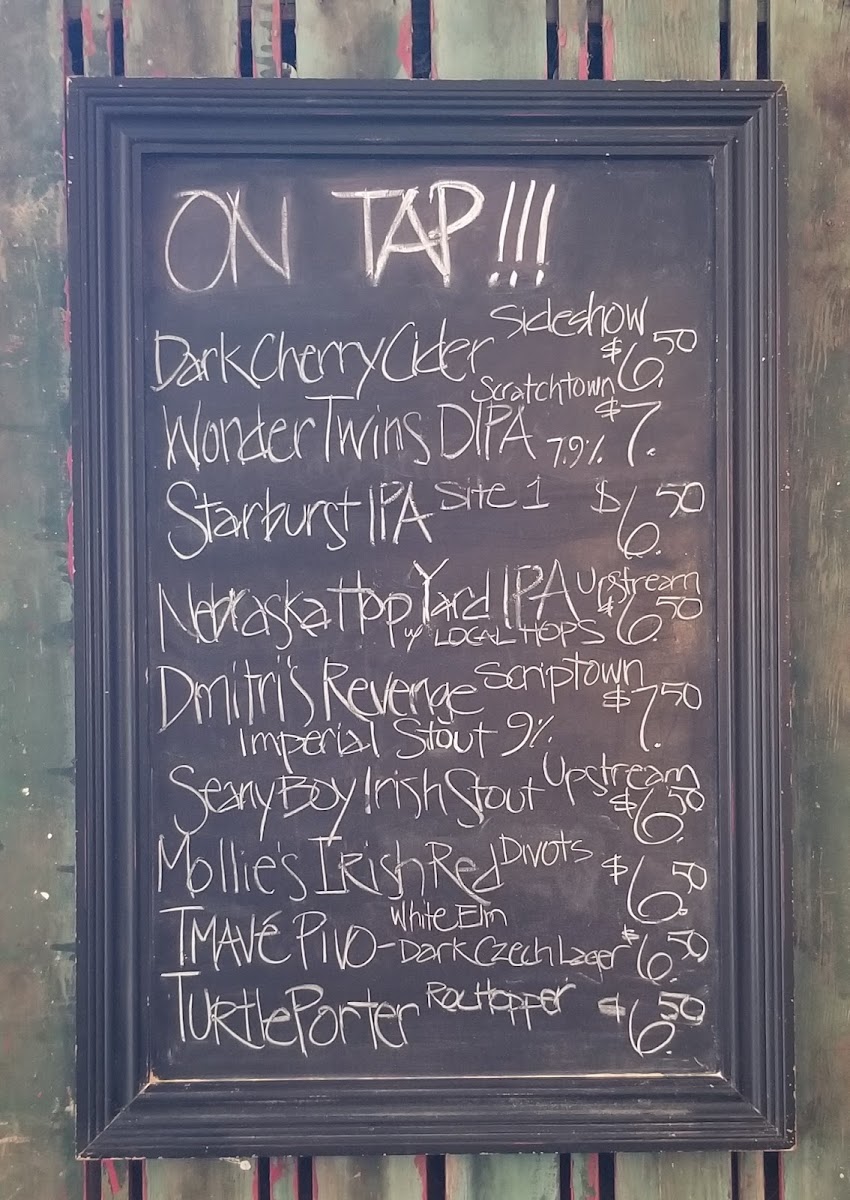 ON TAP!!!
Dark Cherry Cider Sideshow $6.50
Wonder Twins DIPA 7.9% Scratchtown $7.
Starburst IPA Site 1 $6.50
Nebraska Hop Yard IPA Upstream $6.50
w/ LOCAL HOPS
Dmitri's Revenge Scriptown $7.50
Imperial Stout 9%
Seany Boy Irish Stout Upstream $6.50
Mollie's Irish Red Divots $6.50
TMAVÉ PIVO - Dark Czech Lager White Elm $6.50
Turtle Porter $6.50